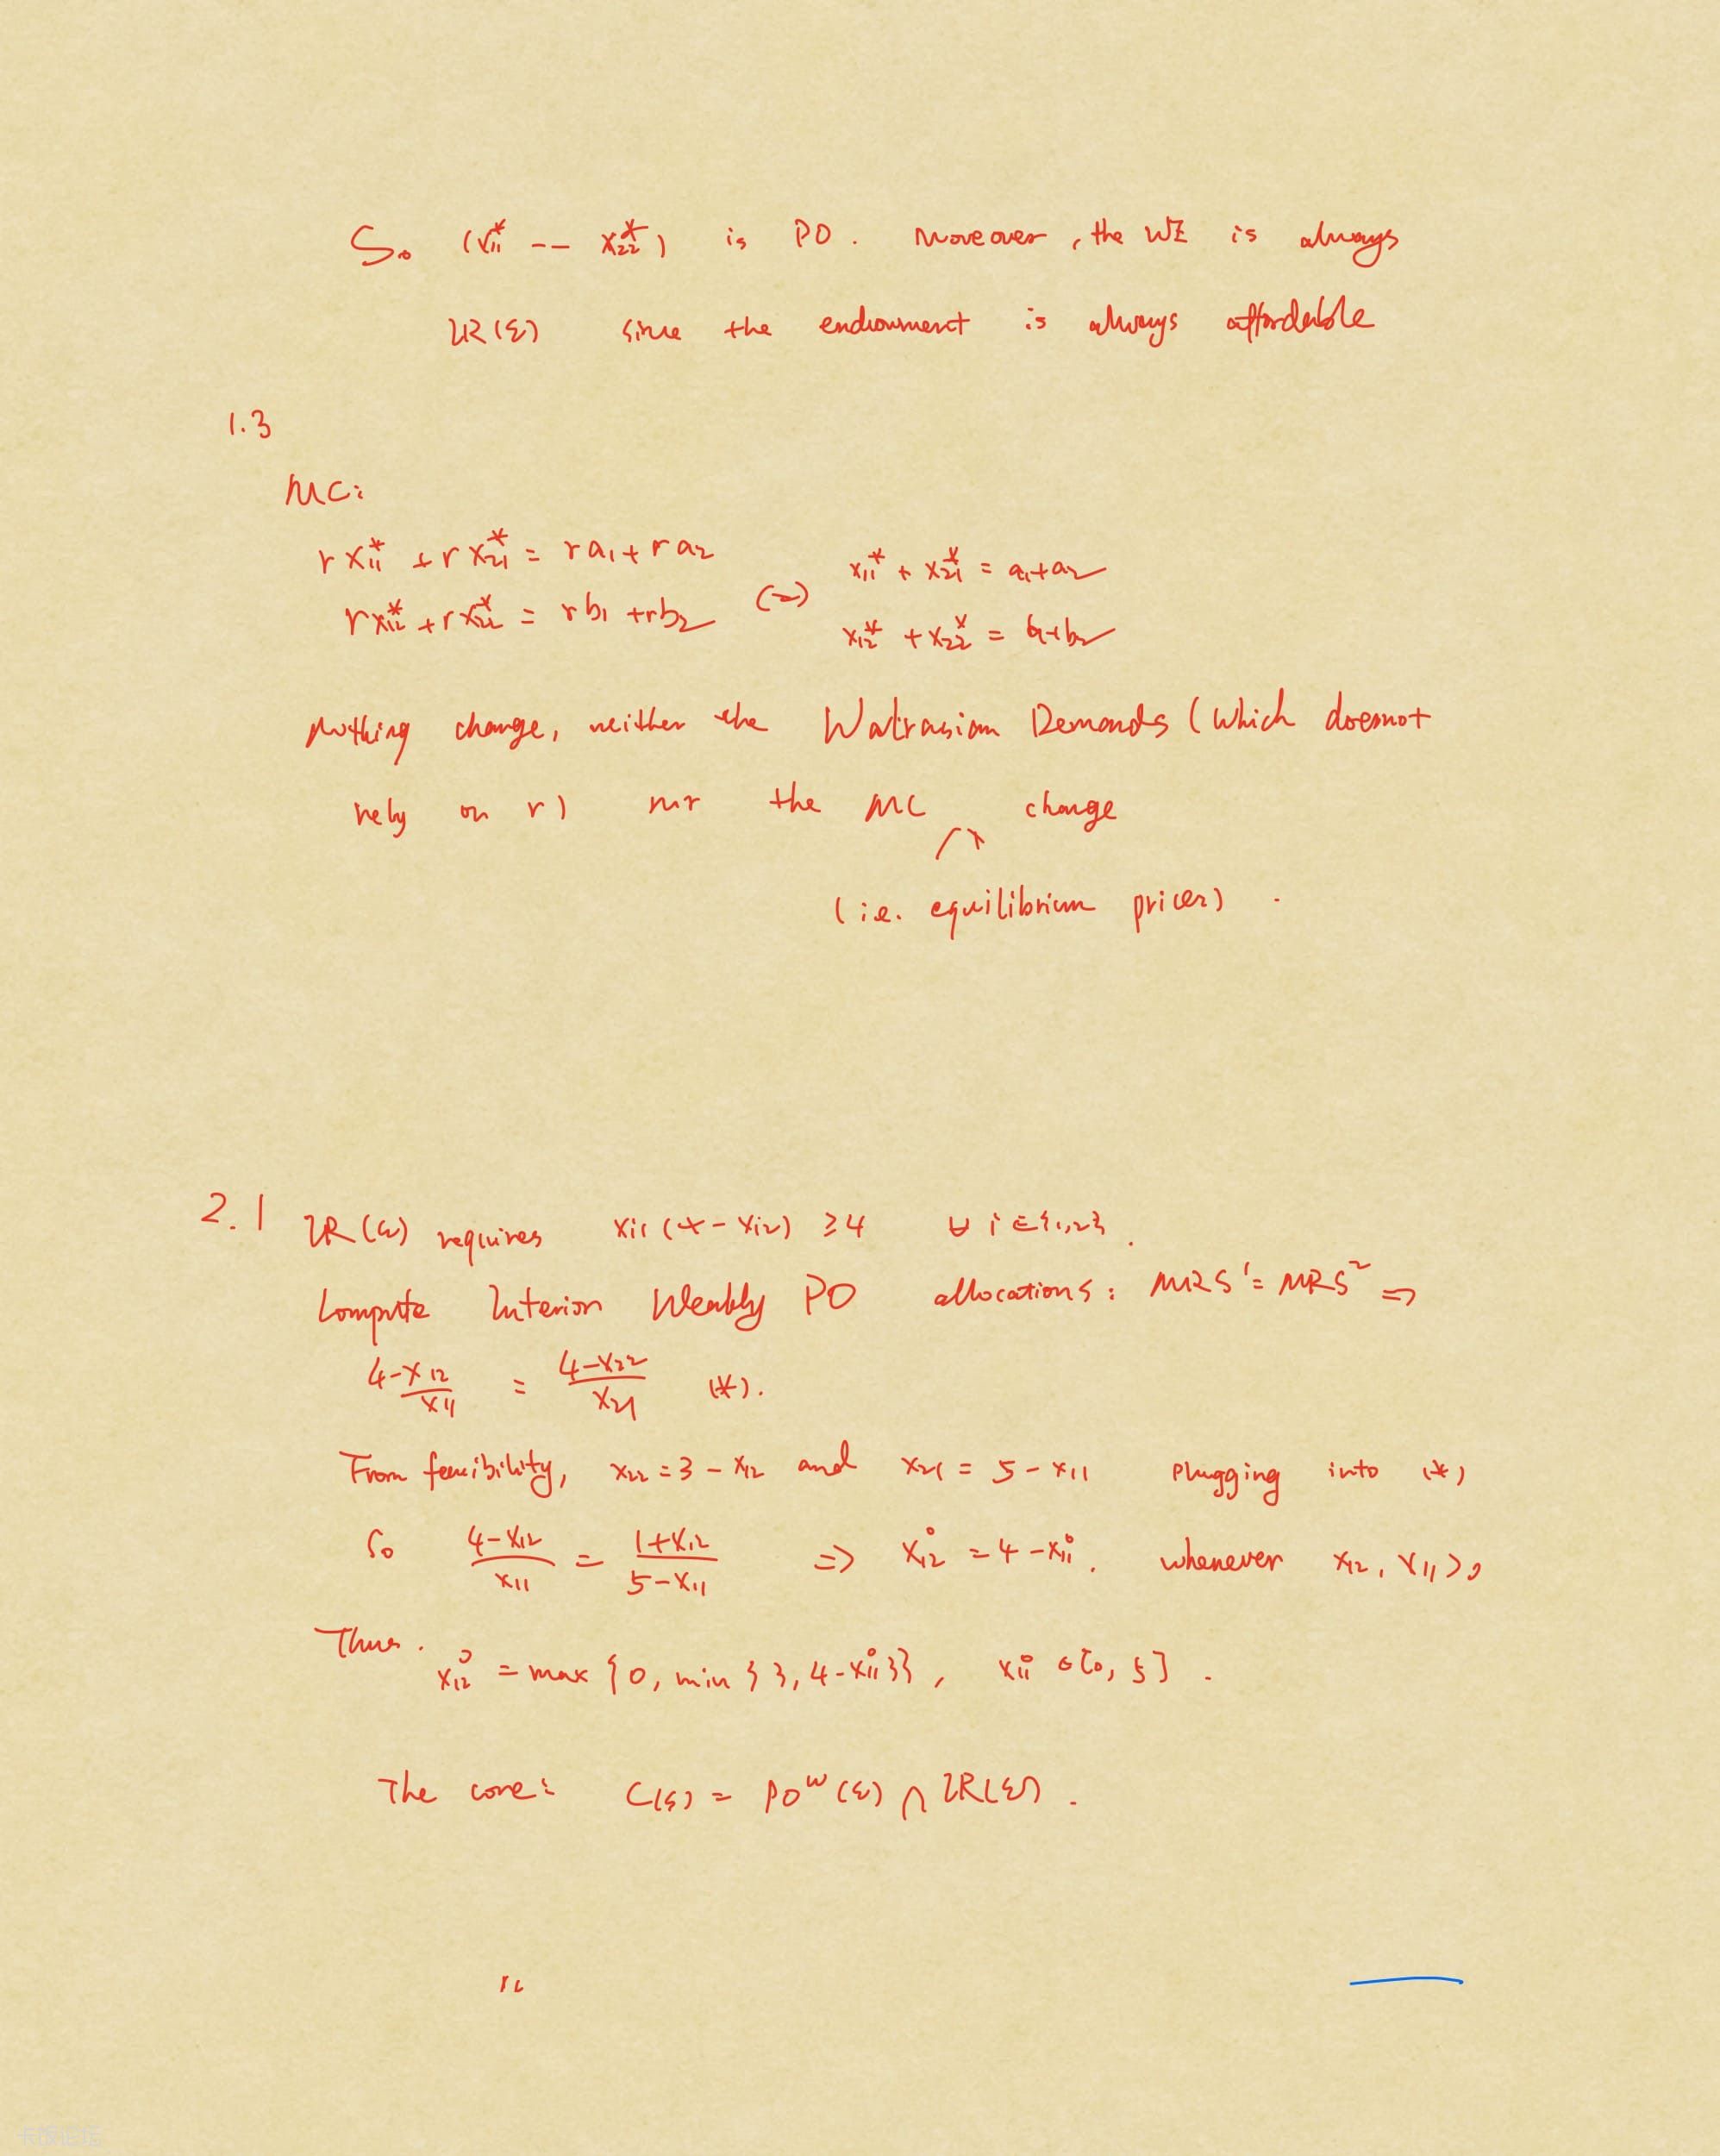 So (x₁₁* -- x₂₂*) is PO. Moreover, the WE is always
IR(ε) since the endowment is always affordable
1.3
MC:
r x₁₁* + r x₂₁* = ra₁ + ra₂
r x₁₂* + r x₂₂* = rb₁ + rb₂
(=)
x₁₁* + x₂₁* = a₁+a₂
x₁₂* + x₂₂* = b₁+b₂
Nothing change, neither the Walrasian Demands (which doesnot
rely on r) nor the MC change
(i.e. equilibrium prices).
2.1 IR(ε) requires xᵢ₁(4-xᵢ₂) ≥4 ∀ i∈{1,2}.
Compute Interior Weakly PO allocations: MRS¹= MRS² ⇒
(4-x₁₂)/x₁₁ = (4-x₂₂)/x₂₁ (*).
From feasibility, x₂₂ = 3 - x₁₂ and x₂₁ = 5 - x₁₁ plugging into (*)
So (4-x₁₂)/x₁₁ = (1+x₁₂)/(5-x₁₁) ⇒ x₁₂° = 4 - x₁₁°. whenever x₁₂, x₁₁>0
Thus.
x₁₂° = max {0, min {3, 4-x₁₁°}}, x₁₁° ∈ [0, 5].
The core: C(ε) = POᵂ(ε) ∩ IR(ε).